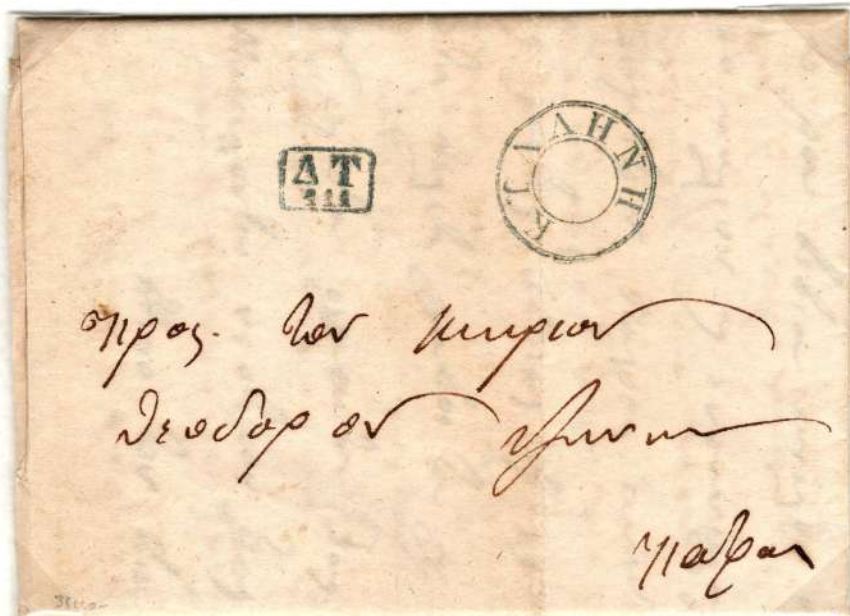 Δ Τ
ΚΥΛΛΗΝΗ
προς τον κυριον
θεοδορον
πατρας